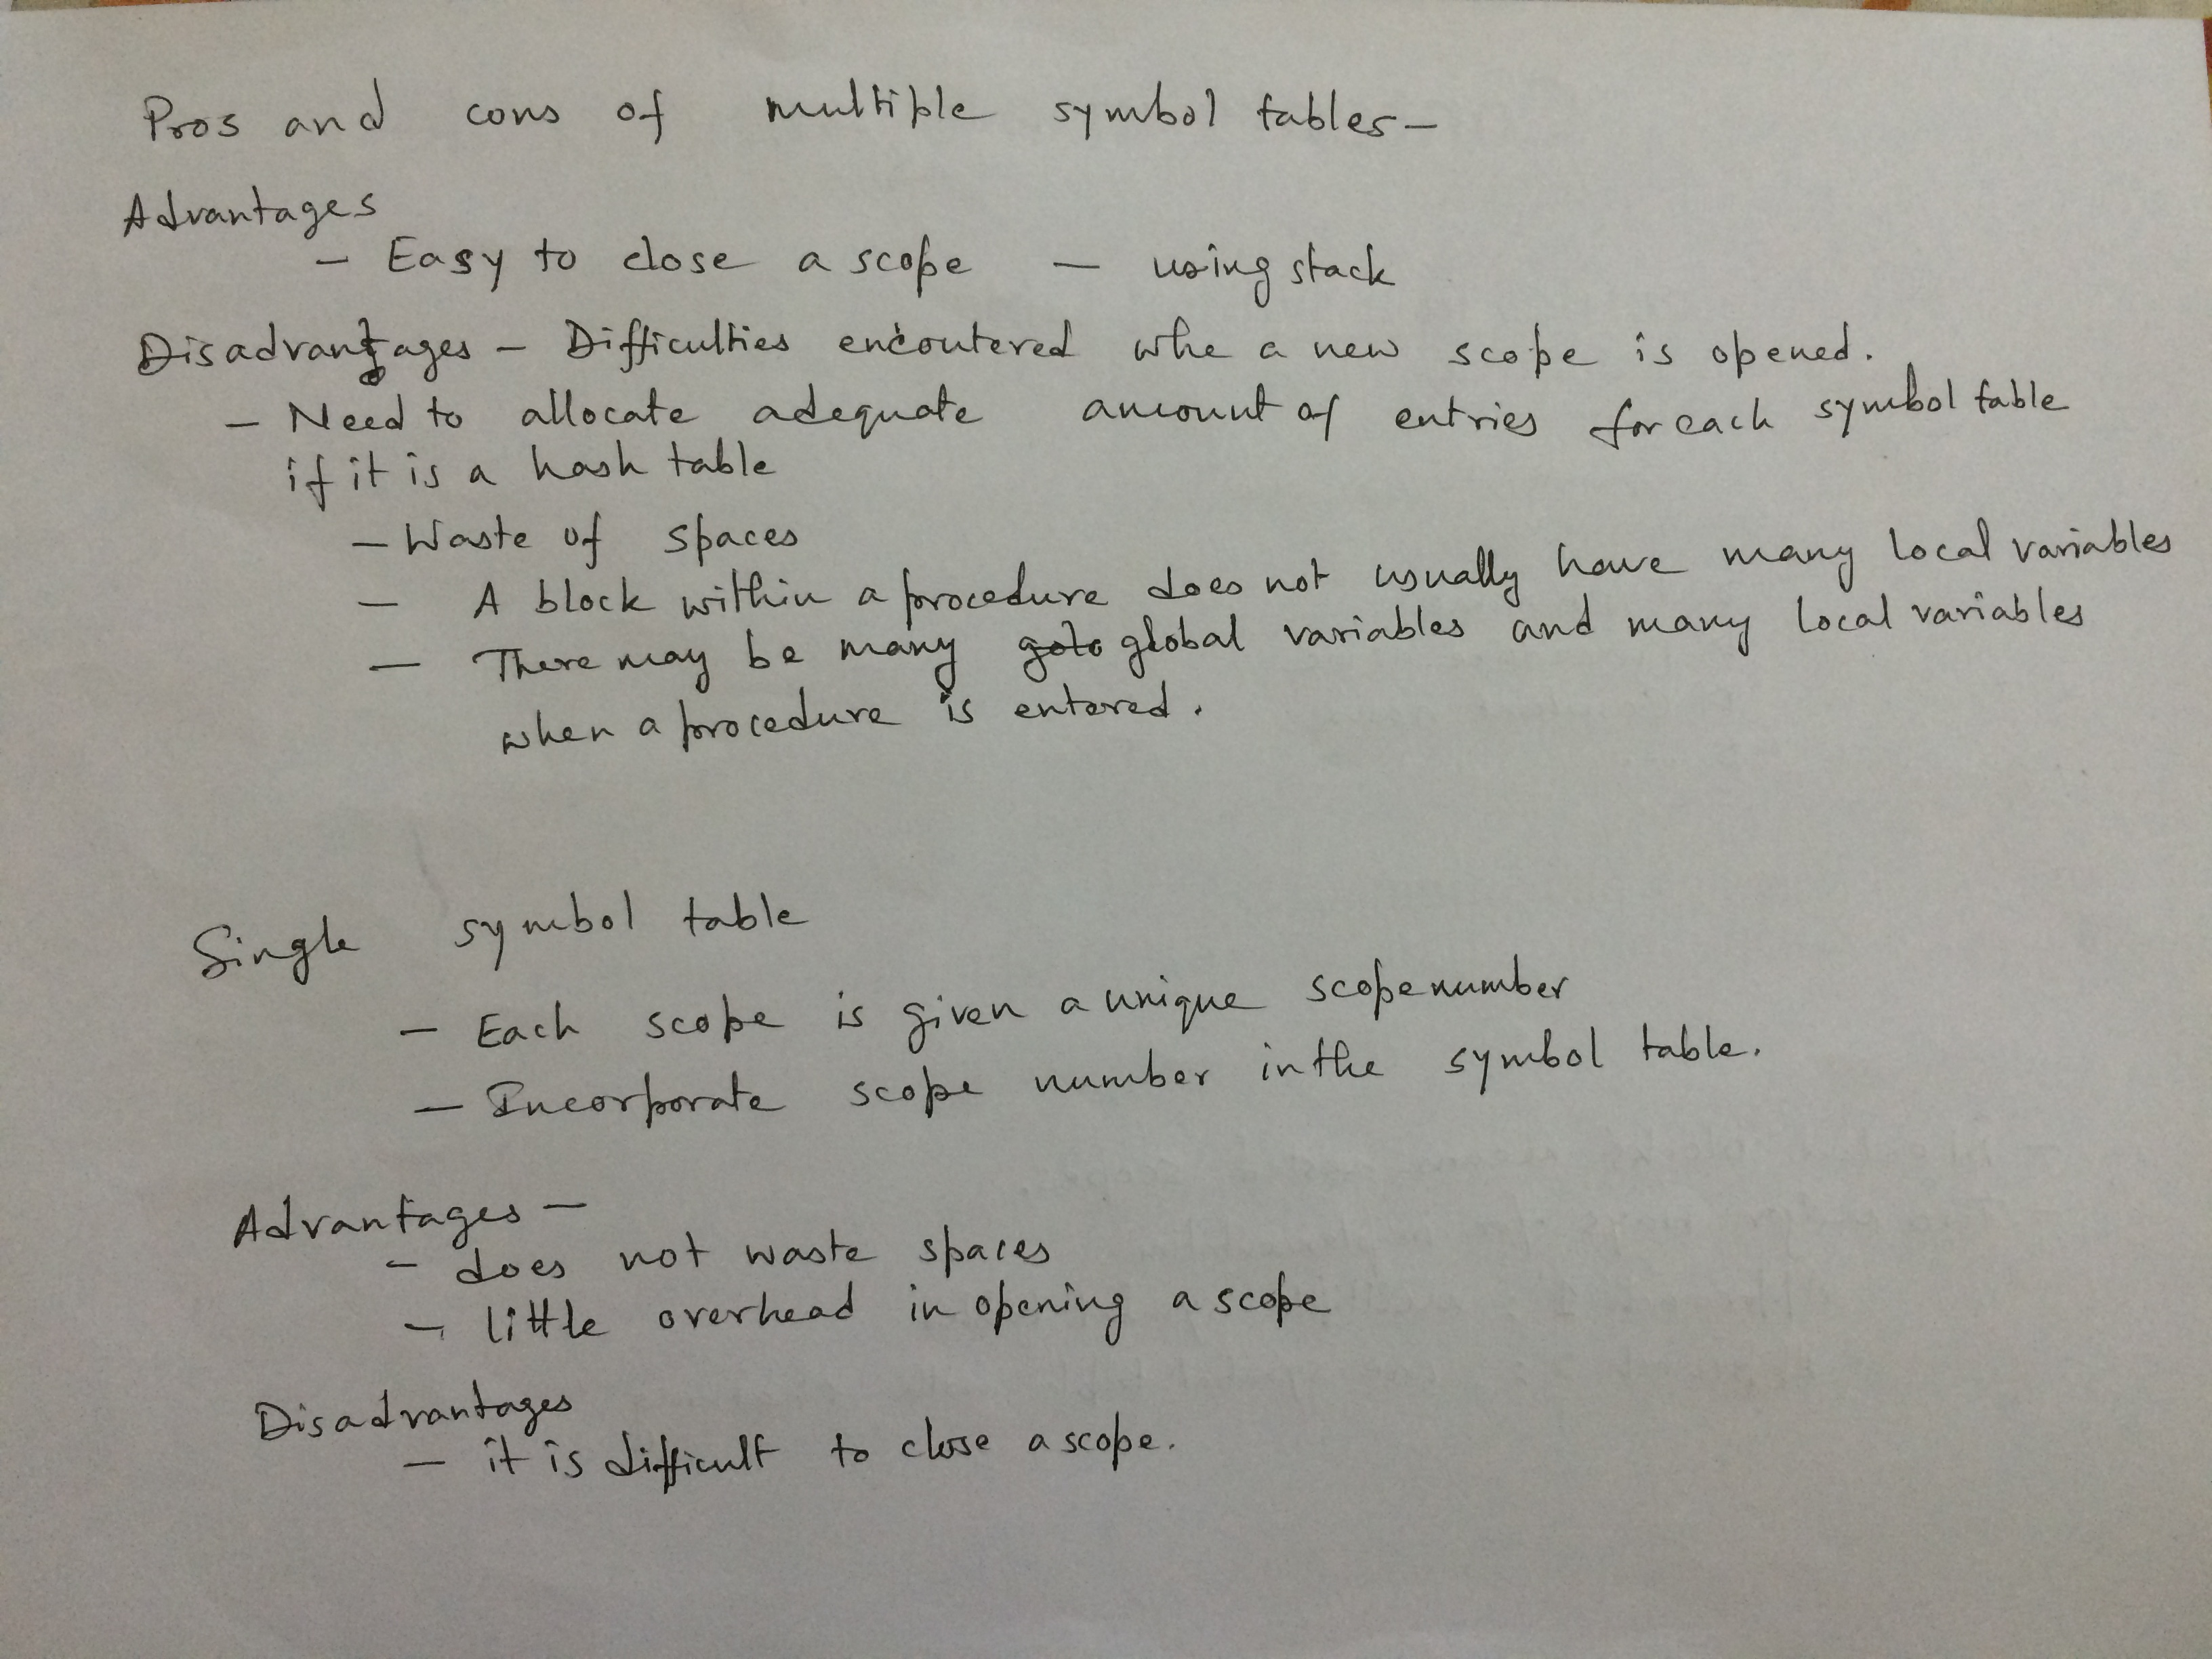 Pros and cons of multiple symbol tables-
Advantages
- Easy to close a scope - using stack
Disadvantages - Difficulties encountered whe a new scope is opened.
- Need to allocate adequate amount of entries for each symbol table
if it is a hash table
- Waste of spaces
- A block within a procedure does not usually have many local variables
- There may be many goto global variables and many local variables
when a procedure is entered.
Single symbol table
- Each scope is given a unique scope number
- Incorporate scope number in the symbol table.
Advantages -
- does not waste spaces
- little overhead in opening a scope
Disadvantages
- it is difficult to close a scope.